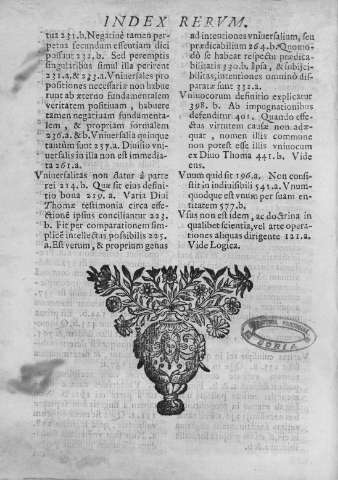 INDEX RERVM.
tur 231.b. Negatiuè tamen per-
petua secundum essentiam dici
possunt 232.b. Sed peremptis
singularibus simul illa perirent
231.a. & 233.a. Vniuersales pro
positiones necessariæ non habue
runt ab æterno fundamentalem
veritatem positiuam, habuere
tamen negatiuam fundamenta-
lem, & propriam formalem
236.a. & b. Vniuersalia quinque
tantùm sunt 257.a. Diuisio vni-
uersalis in illa non est immedia-
ta 261.a.
Vniuersalitas non datur à parte
rei 214.b. Quæ sit eius defini-
tio bona 219.a. Varia Diui
Thomæ testimonia circa effe-
ctionè ipsius conciliantur 223.
b. Fit per comparationem sim-
plicē intellectus possibilis 225.
a. Est verum, & proprium genus
ad intentiones vniuersalium, seu
prædicabilium 264.b. Quomo-
dò se habeat respectu prædica-
bilitatis 330.b. Ipsa, & subijci-
bilitas, intentiones omninò dis-
paratæ sunt 332.a.
Vniuocorum definitio explicatur
398.b. Ab impugnationibus
defenditur 401. Quando effe-
ctus virtutem causæ non adæ-
quat, nomen illis commune
non potest esse illis vniuocum
ex Diuo Thoma 441.b. Vide
ens.
Vnum quid sit 196.a. Non consi-
stit in indiuisibili 541.a. Vnum-
quodque est vnum per suam en-
titatem 577.b.
Vsus non est idem, ac doctrina in
qualibet scientia, vel arte opera-
tiones aliquas dirigente 121.a.
Vide Logica.
SORIA